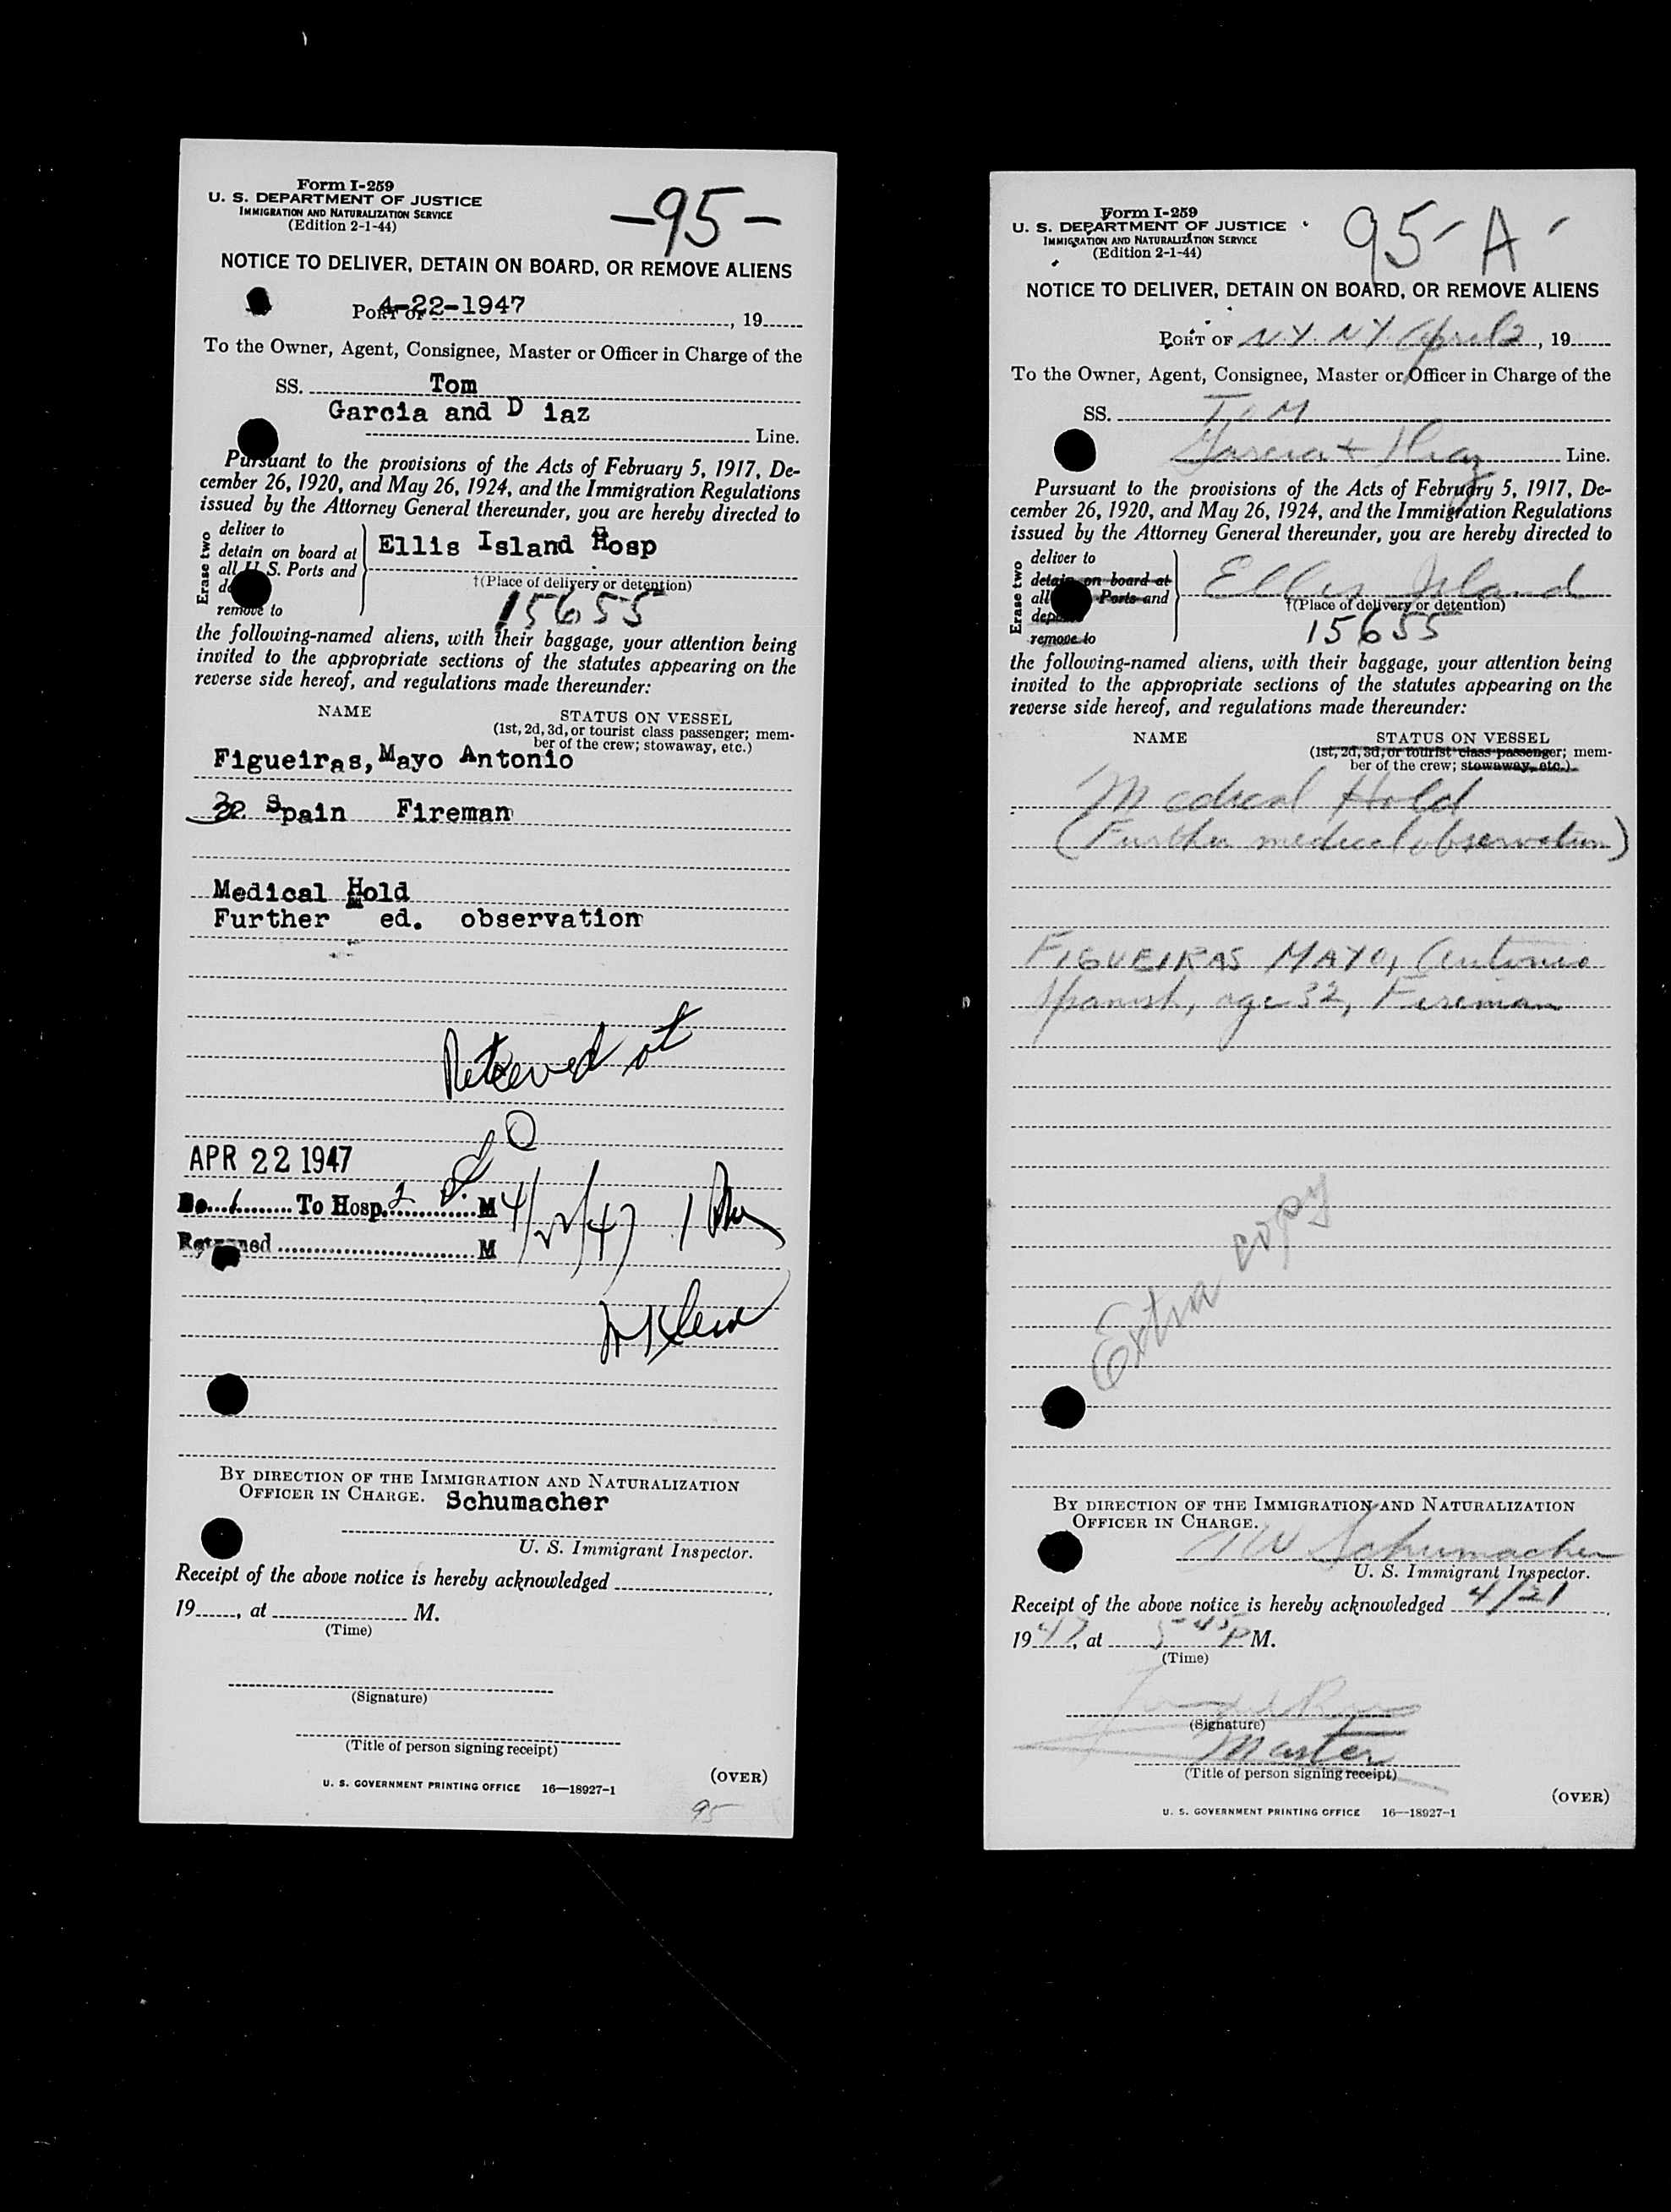 Form I-259
U. S. DEPARTMENT OF JUSTICE
IMMIGRATION AND NATURALIZATION SERVICE
(Edition 2-1-44)
-95-
NOTICE TO DELIVER, DETAIN ON BOARD, OR REMOVE ALIENS
PORT OF 4-22-1947, 19
To the Owner, Agent, Consignee, Master or Officer in Charge of the
SS. Tom
Garcia and D iaz
Line.
Pursuant to the provisions of the Acts of February 5, 1917, De-
cember 26, 1920, and May 26, 1924, and the Immigration Regulations
issued by the Attorney General thereunder, you are hereby directed to
Erase two
deliver to
detain on board at
all U. S. Ports and
remove to
Ellis Island Hosp
†(Place of delivery or detention)
15655
the following-named aliens, with their baggage, your attention being
invited to the appropriate sections of the statutes appearing on the
reverse side hereof, and regulations made thereunder:
NAME STATUS ON VESSEL
(1st, 2d, 3d, or tourist class passenger; mem-
ber of the crew; stowaway, etc.)
Figueiras, Mayo Antonio
32 Spain Fireman
Medical Hold
Further ed. observation
at
APR 22 1947
To Hosp. 2 M 4/22/47 1
Returned M
Klein
BY DIRECTION OF THE IMMIGRATION AND NATURALIZATION
OFFICER IN CHARGE. Schumacher
U. S. Immigrant Inspector.
Receipt of the above notice is hereby acknowledged
19, at M.
(Time)
(Signature)
(Title of person signing receipt)
(OVER)
U. S. GOVERNMENT PRINTING OFFICE 16—18927-1
95
Form I-259
U. S. DEPARTMENT OF JUSTICE
IMMIGRATION AND NATURALIZATION SERVICE
(Edition 2-1-44)
95-A-
NOTICE TO DELIVER, DETAIN ON BOARD, OR REMOVE ALIENS
PORT OF N.Y. N.Y. April 2, 19
To the Owner, Agent, Consignee, Master or Officer in Charge of the
SS. TOM
Garcia + Diaz Line.
Pursuant to the provisions of the Acts of February 5, 1917, De-
cember 26, 1920, and May 26, 1924, and the Immigration Regulations
issued by the Attorney General thereunder, you are hereby directed to
Erase two
deliver to
detain on board at
all Ports and
remove to
Ellis Island
†(Place of delivery or detention)
15655
the following-named aliens, with their baggage, your attention being
invited to the appropriate sections of the statutes appearing on the
reverse side hereof, and regulations made thereunder:
NAME STATUS ON VESSEL
(1st, 2d, 3d, or tourist class passenger; mem-
ber of the crew; stowaway, etc.)
Medical Hold
(Further medical observation)
FIGUEIRAS MAYO, Antonio
Spanish, age 32, Fireman
Extra copy
BY DIRECTION OF THE IMMIGRATION AND NATURALIZATION
OFFICER IN CHARGE.
Schumacher
U. S. Immigrant Inspector.
Receipt of the above notice is hereby acknowledged 4/21
1947, at 5 45 P M.
(Time)
(Signature)
Master
(Title of person signing receipt)
(OVER)
U. S. GOVERNMENT PRINTING OFFICE 16—18927-1